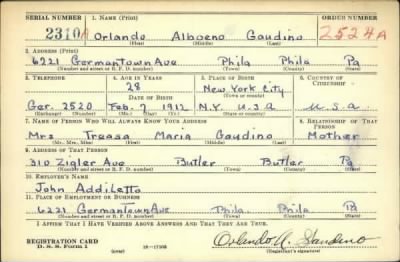 SERIAL NUMBER 1. NAME (Print) ORDER NUMBER
2310A Orlando Alboeno Gaudino 2524A
(First) (Middle) (Last)
2. ADDRESS (Print)
6221 Germantown Ave Phila Phila Pa
(Number and street or R. F. D. number) (Town) (County) (State)
3. TELEPHONE 4. AGE IN YEARS 5. PLACE OF BIRTH 6. COUNTRY OF CITIZENSHIP
28 New York City
DATE OF BIRTH (Town or county)
Ger. 2520 Feb. 7 1912 N.Y. U.S.A U.S.A.
(Exchange) (Number) (Mo.) (Day) (Yr.) (State or country)
7. NAME OF PERSON WHO WILL ALWAYS KNOW YOUR ADDRESS 8. RELATIONSHIP OF THAT PERSON
Mrs Treasa Maria Gaudino Mother
(Mr., Mrs., Miss) (First) (Middle) (Last)
9. ADDRESS OF THAT PERSON
310 Zigler Ave Butler Butler Pa
(Number and street or R. F. D. number) (Town) (County) (State)
10. EMPLOYER'S NAME
John Addiletta
11. PLACE OF EMPLOYMENT OR BUSINESS
6221 Germantown Ave Phila Phila Pa
(Number and street or R. F. D. number) (Town) (County) (State)
I AFFIRM THAT I HAVE VERIFIED ABOVE ANSWERS AND THAT THEY ARE TRUE.
REGISTRATION CARD
D. S. S. Form 1 (over) 16—17105 Orlando A. Gaudino
(Registrant's signature)